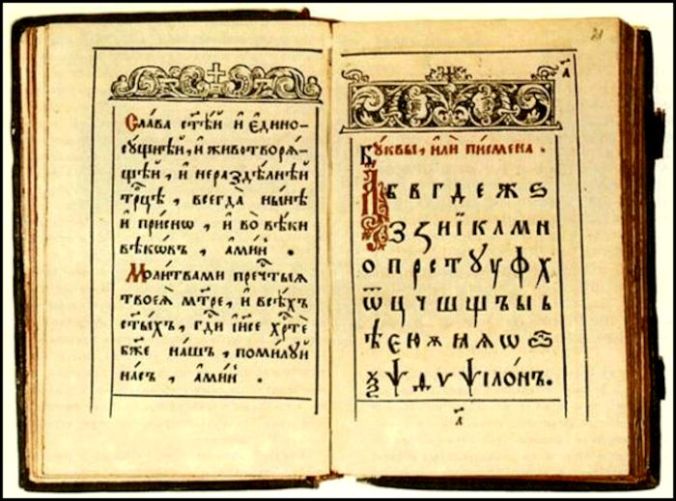 Сла́ва ст҃ѣ́й и҆ є҆дино-
сꙋ́щнѣй, и҆ животворѧ́-
щѣй, и҆ нераздѣ́лнѣй
трⷪ҇цѣ, всегда̀ ны́нѣ
и҆ при́снѡ, и҆ во вѣ́ки
вѣкѡ́въ, а҆ми́нь.
Моли́твами пречⷭ҇тыѧ
твоеѧ̀ мт҃ре, и҆ всѣ́хъ
ст҃ы́хъ, гд҃и і҆и҃се хрⷭ҇те
бж҃е на́шъ, поми́лꙋй
на́съ, а҆ми́нь.
21
а҃
Бꙋ́квы, и҆лѝ пи́смена.
А б в г д е ж ѕ
З ꙁ и ї к л м н
о п р с т ꙋ у ф х
ѿ ц ч ш щ ъ ы ь
ѣ є ю ѫ ꙗ ѧ ѡ
ѯ ѱ ѳ ѵ ѱїло́нъ.
а҃